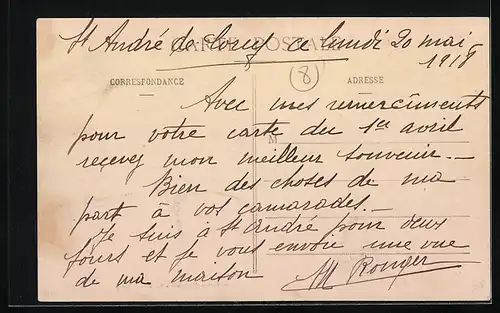 St André de Corcy ce lundi 20 mai
1918
CARTE POSTALE
(8)
CORRESPONDANCE
ADRESSE
M
Avec mes remercîments
pour votre carte du 1er avril
recevez mon meilleur souvenir.
Bien des choses de ma
part à vos camarades.
Je suis à St André pour deux
jours et je vous envoie une vue
de ma maison
M Rouger